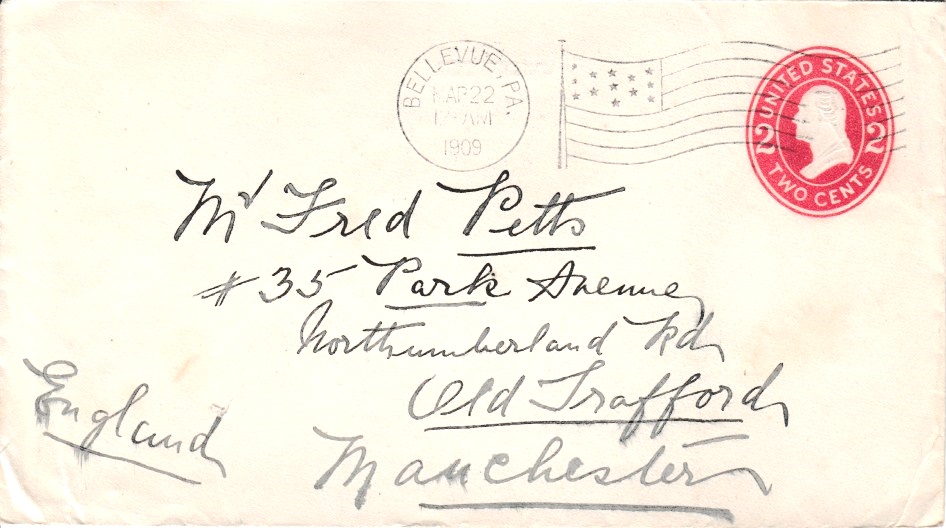 BELLEVUE, PA.
MAR 22
AM
1909
UNITED STATES
2 2
TWO CENTS
Mr Fred Petts
# 35 Park Avenue
Northumberland Rd
Old Trafford
Manchester
England